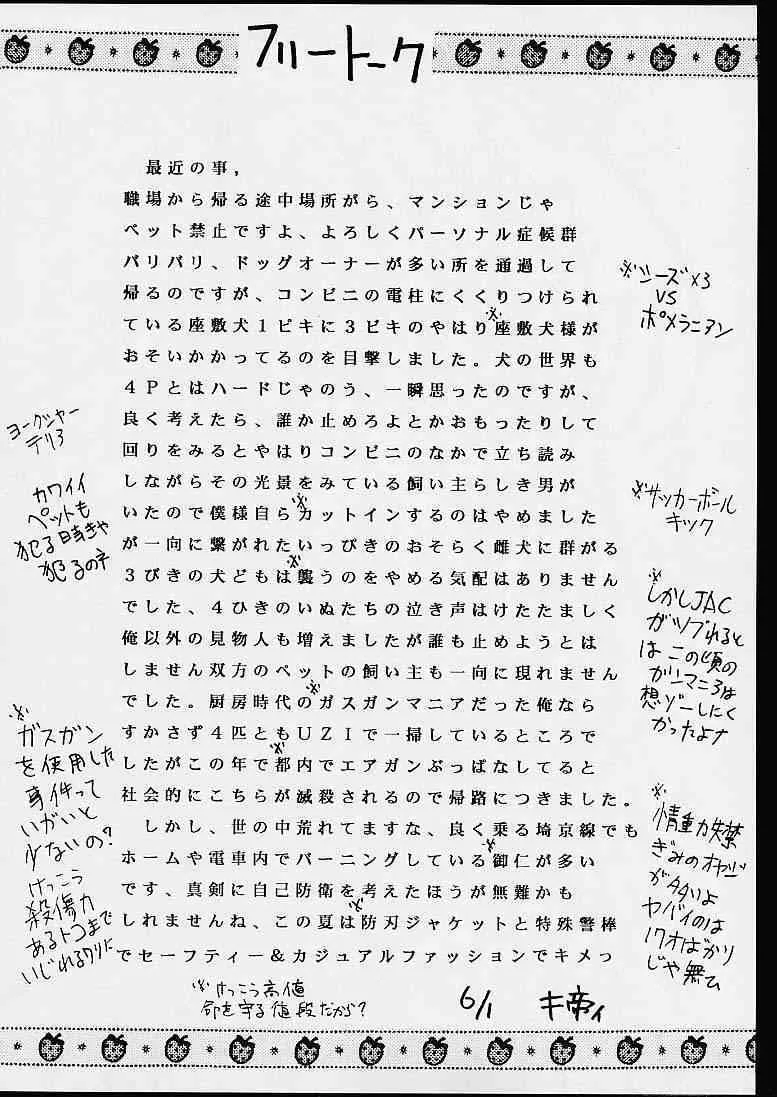 フリートーク
最近の事,
職場から帰る途中場所がら、マンションじゃ
ペット禁止ですよ、よろしくパーソナル症候群
バリバリ、ドッグオーナーが多い所を通過して
帰るのですが、コンビニの電柱にくくりつけられ
ている座敷犬１ピキに３ビキのやはり座敷犬様が
おそいかかってるのを目撃しました。犬の世界も
４Ｐとはハードじゃのう、一瞬思ったのですが、
良く考えたら、誰か止めろよとかおもったりして
回りをみるとやはりコンビニのなかで立ち読み
しながらその光景をみている飼い主らしき男が
いたので僕様自らカットインするのはやめました
が一向に繋がれたいっぴきのおそらく雌犬に群がる
３びきの犬どもは襲うのをやめる気配はありません
でした、４ひきのいぬたちの泣き声はけたたましく
俺以外の見物人も増えましたが誰も止めようとは
しません双方のペットの飼い主も一向に現れません
でした。厨房時代のガスガンマニアだった俺なら
すかさず４匹ともＵＺＩで一掃しているところで
したがこの年で都内でエアガンぶっぱなしてると
社会的にこちらが滅殺されるので帰路につきました。
しかし、世の中荒れてますな、良く乗る埼京線でも
ホームや電車内でバーニングしている御仁が多い
です、真剣に自己防衛を考えたほうが無難かも
しれませんね、この夏は防刃ジャケットと特殊警棒
でセーフティー＆カジュアルファッションでキメっ
※シーズ×3
VS
ポメラニアン
ヨークシャー
テリア
カワイイ
ペットも
犯る時きゃ
犯るのネ
※サッカーボール
キック
※
しかしJAC
がツブれると
はこの頃の
ガンマニアは
想ゾーしにく
かったよナ
※
ガスガン
を使用した
事件って
いがいと
少ないの?
けっこう
殺傷力
あるトコまで
いじれるワリに
※
情重力失禁
ぎみのオヤジ
が多いよ
ヤバイのは
17才ばかり
じゃ無ひ
※けっこう高値
命を守る値段だから?
6/1 キ帝ィ